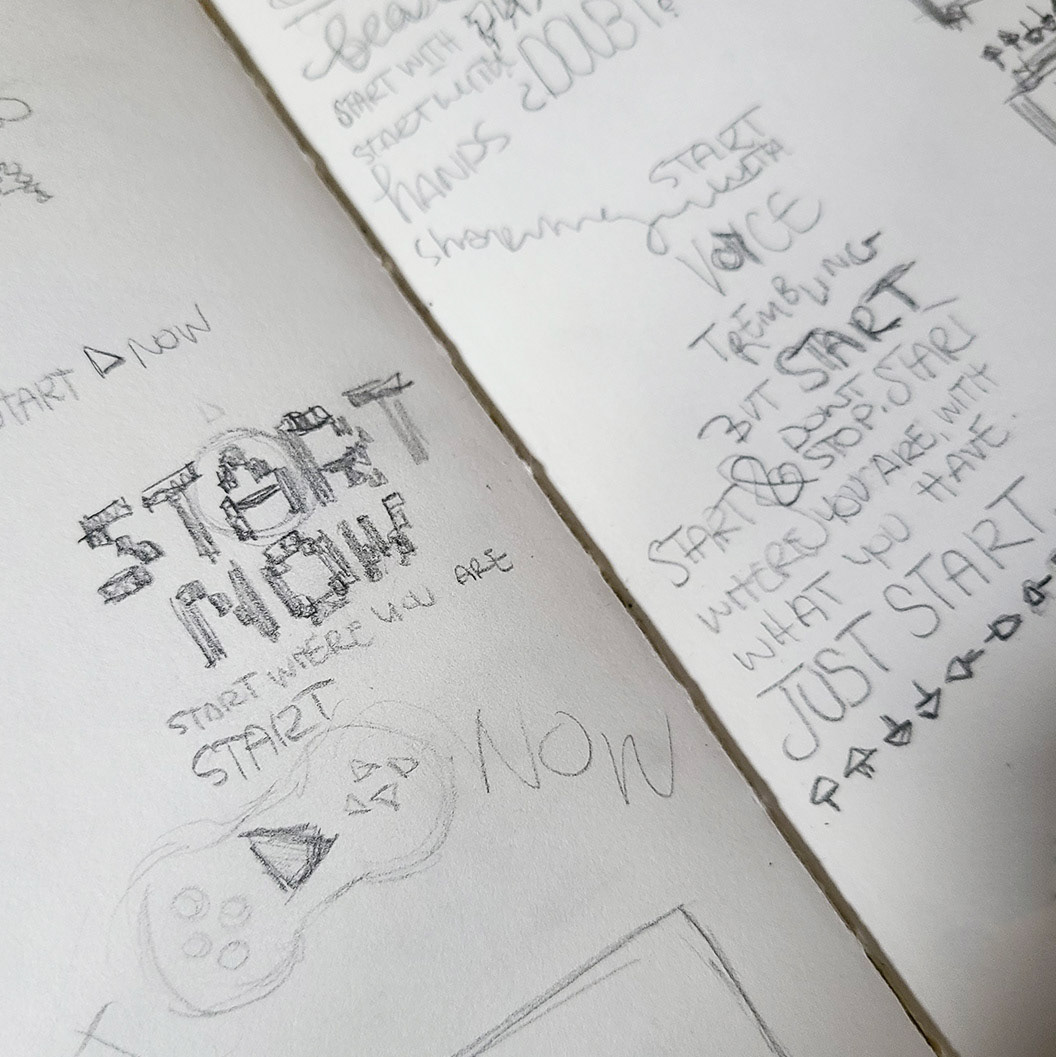 START ▷ NOW
START
NOW
START WHERE YOU ARE
START
NOW
START WITH
START WITH
¿DOUBT?
HANDS
START
WITH
VOICE
TREMBLING
BUT START
START & DONT
STOP. START
WHERE YOU ARE, WITH
WHAT YOU HAVE.
JUST START